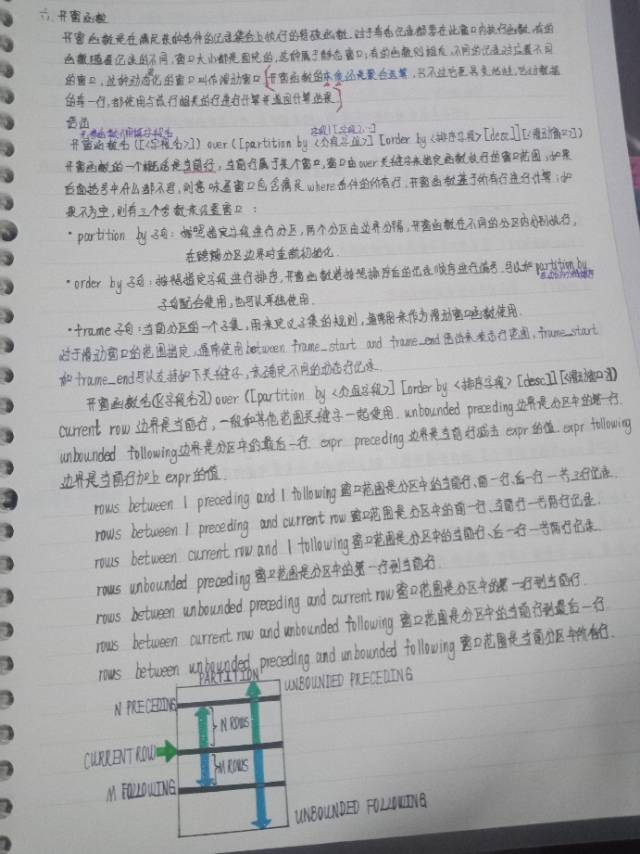 六. 开窗函数
开窗函数是在满足某种条件的记录集合上执行的特殊函数. 对于每条记录都要在此窗口内执行函数, 有的
函数随着记录的不同, 窗口大小都是固定的, 这种属于静态窗口; 有的函数则相反, 不同的记录对应着不同
的窗口, 这种动态变化的窗口叫作滑动窗口. 开窗函数的本质还是聚合运算, 只不过它更具灵活性, 它对数据
的每一行, 都使用与该行相关的行进行计算并返回计算结果.
语法
开窗函数名([<字段名>]) over([partition by <分组字段>] [order by <排序字段>[desc]] [<滑动窗口>])
开窗函数的一个概念是当前行, 当前行属于某个窗口, 窗口由over关键字来指定函数执行的窗口范围, 如果
后面括号中什么都不写, 则意味着窗口包含满足where条件的所有行, 开窗函数基于所有行进行计算; 如
果不为空, 则有三个参数来设置窗口:
· partition by 子句: 按照指定字段进行分区, 两个分区由边界分隔, 开窗函数在不同的分区内分别执行,
在跨越分区边界时重新初始化.
· order by 子句: 按照指定字段进行排序, 开窗函数将按照排序后的记录顺序进行编号. 可以和partition by
子句配合使用, 也可以单独使用.
· frame 子句: 当前分区的一个子集, 用来定义子集的规则, 通常用来作为滑动窗口函数使用.
对于滑动窗口的范围指定, 通常使用 between frame_start and frame_end 语法来表示行范围, frame_start
和 frame_end可以支持如下关键字, 来确定不同的动态行记录.
开窗函数名([<字段名>]) over ([partition by <分组字段>] [order by <排序字段> [desc]] [<滑动窗口>])
current row 边界是当前行, 一般和其他范围关键字一起使用. unbounded preceding 边界是分区中的第一行.
unbounded following边界是分区中的最后一行. expr preceding 边界是当前行减去 expr 的值. expr following
边界是当前行加上 expr 的值.
rows between 1 preceding and 1 following 窗口范围是分区中的当前行、前一行、后一行一共3行记录.
rows between 1 preceding and current row 窗口范围是分区中的前一行、当前行一共两行记录.
rows between current row and 1 following 窗口范围是分区中的当前行、后一行一共两行记录.
rows unbounded preceding 窗口范围是分区中的第一行到当前行.
rows between unbounded preceding and current row 窗口范围是分区中的第一行到当前行.
rows between current row and unbounded following 窗口范围是分区中的当前行到最后一行.
rows between unbounded preceding and unbounded following 窗口范围是当前分区中所有行.
PARTITION
UNBOUNDED PRECEDING
N PRECEDING
N ROWS
CURRENT ROW
M ROWS
M FOLLOWING
UNBOUNDED FOLLOWING